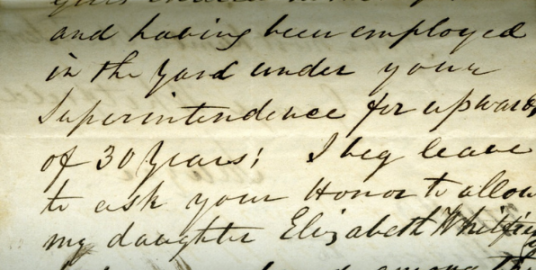 and having been employed
in the Yard under your
Superintendence for upwards
of 30 Years; I beg leave
to ask your Honor to allow
my daughter Elizabeth